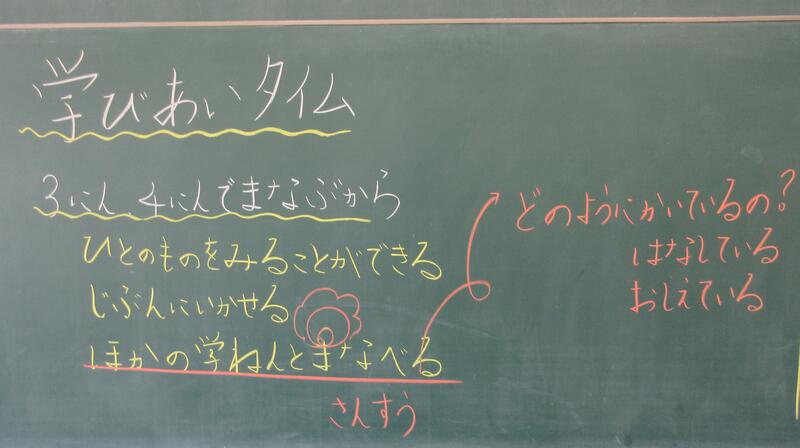 学びあいタイム
3にん、4にんでまなぶから
ひとのものをみることができる
じぶんにいかせる
ほかの学ねんとまなべる
さんすう
どのようにかいているの?
はなしている
おしえている